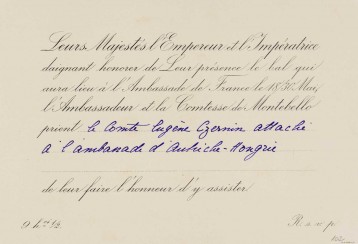 Leurs Majestés l'Empereur et l'Impératrice
daignant honorer de Leur présence le bal qui
aura lieu à l'Ambassade de France le 18/30 Mai,
l'Ambassadeur et la Comtesse de Montebello
prient le Comte Eugène Czernin attaché
à l'ambassade d'Autriche-Hongrie
de leur faire l'honneur d'y assister.
R. s. v. p.